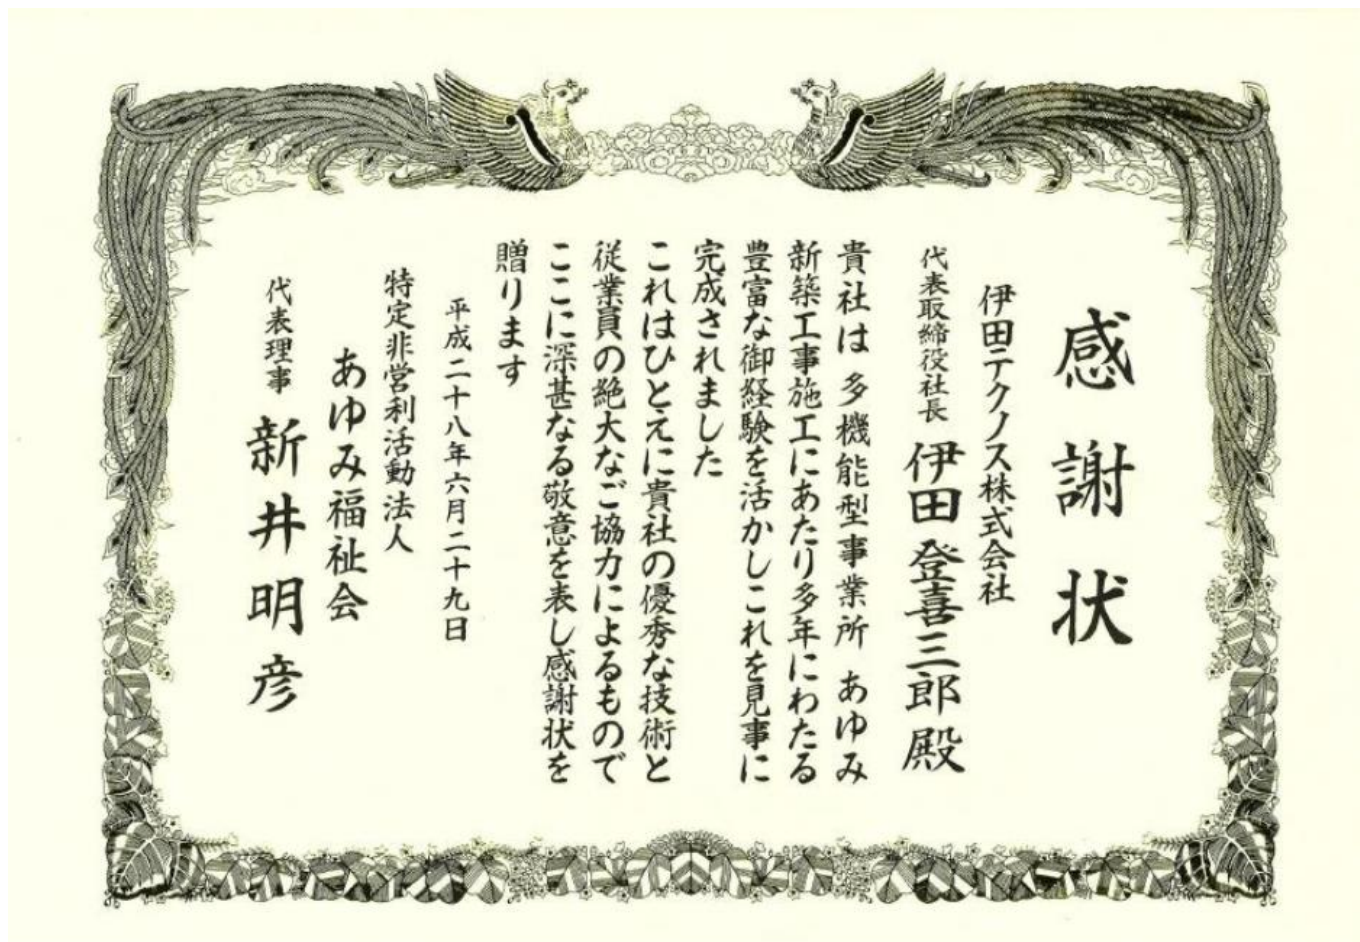 感謝状
伊田テクノス株式会社
代表取締役社長 伊田登喜三郎殿
貴社は 多機能型事業所 あゆみ
新築工事施工にあたり多年にわたる
豊富な御経験を活かしこれを見事に
完成されました
これはひとえに貴社の優秀な技術と
従業員の絶大なご協力によるもので
ここに深甚なる敬意を表し感謝状を
贈ります
平成二十八年六月二十九日
特定非営利活動法人
あゆみ福祉会
代表理事 新井明彦